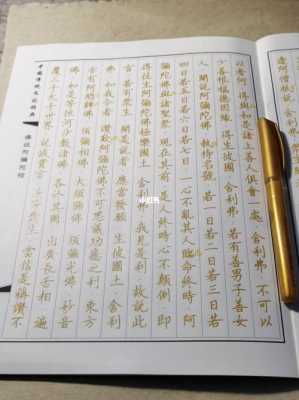 邊阿僧祇說 舍
以者何 得與如是諸上善人俱會一處 舍利弗 不可以
少善根福德因緣 得生彼國 舍利弗 若有善男子善女
人 聞說阿彌陀佛 執持名號 若一日 若二日 若三日 若
四日 若五日 若六日 若七日 一心不亂 其人臨命終時 阿
彌陀佛 與諸聖眾 現在其前 是人終時 心不顛倒 即
得往生阿彌陀佛極樂國土 舍利弗 我見是利 故說此
言 若有眾生 聞是說者 應當發願 生彼國土 舍利
弗 如我今者 讚歎阿彌陀佛 不可思議功德之利 東方
亦有阿閦鞞佛 須彌相佛 大須彌佛 須彌光佛 妙音
佛 如是等恒河沙數諸佛 各於其國 出廣長舌相 遍
覆三千大千世界 說誠實言 汝等眾生 當信是稱讚不
中國傳統文化經典
佛說阿彌陀經
小红书